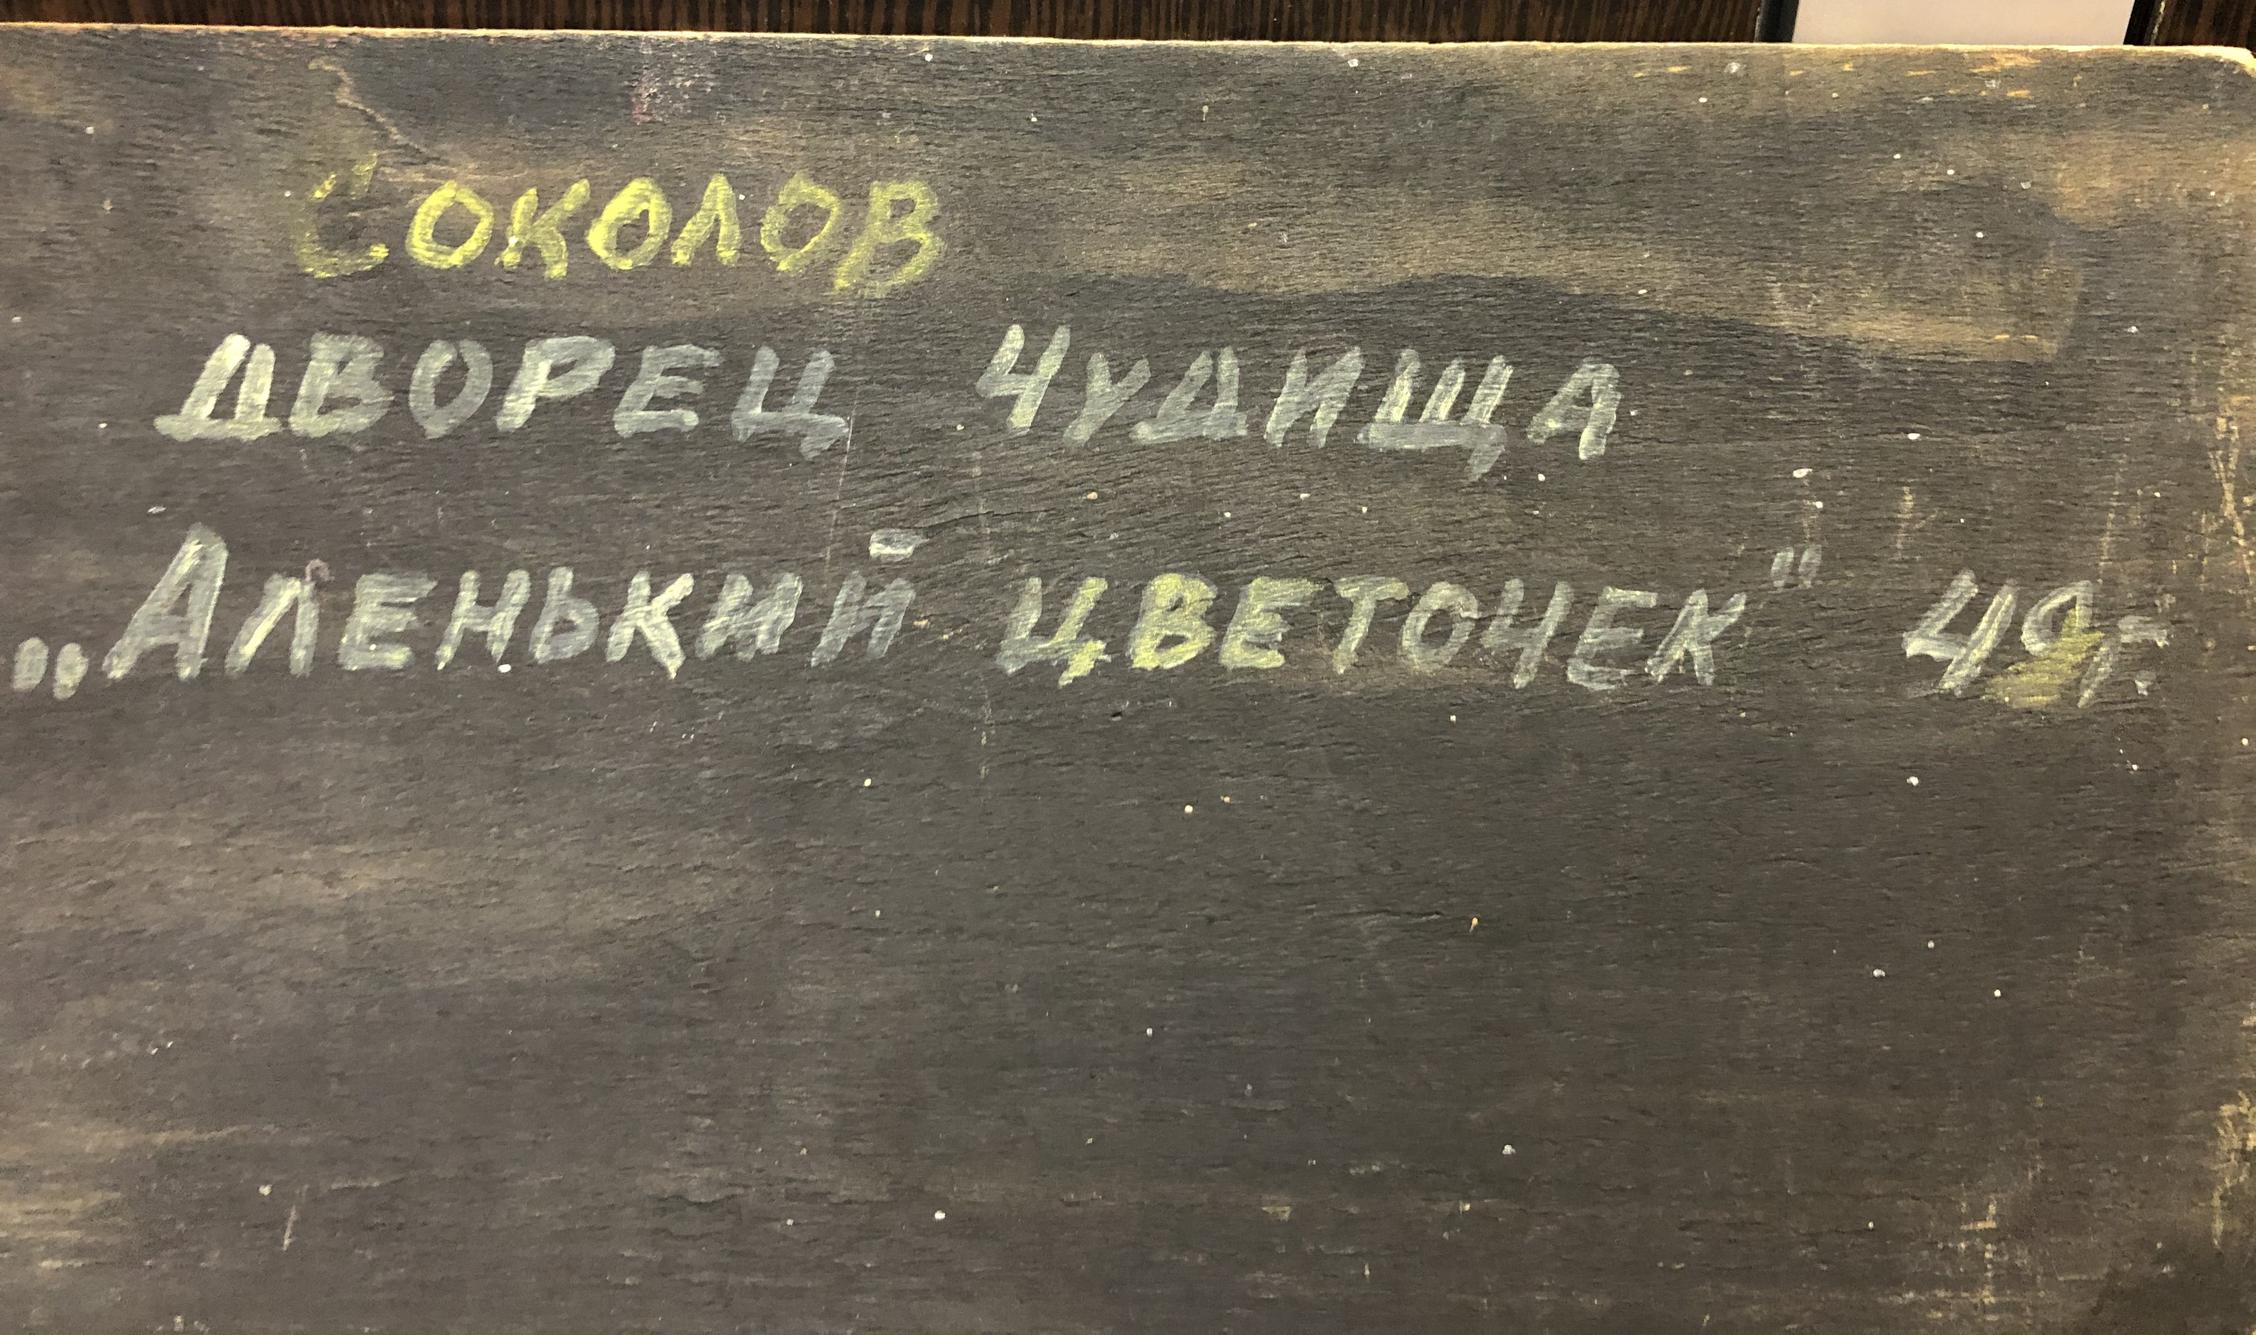 СОКОЛОВ
ДВОРЕЦ ЧУДИЩА
„АЛЕНЬКИЙ ЦВЕТОЧЕК" 49г